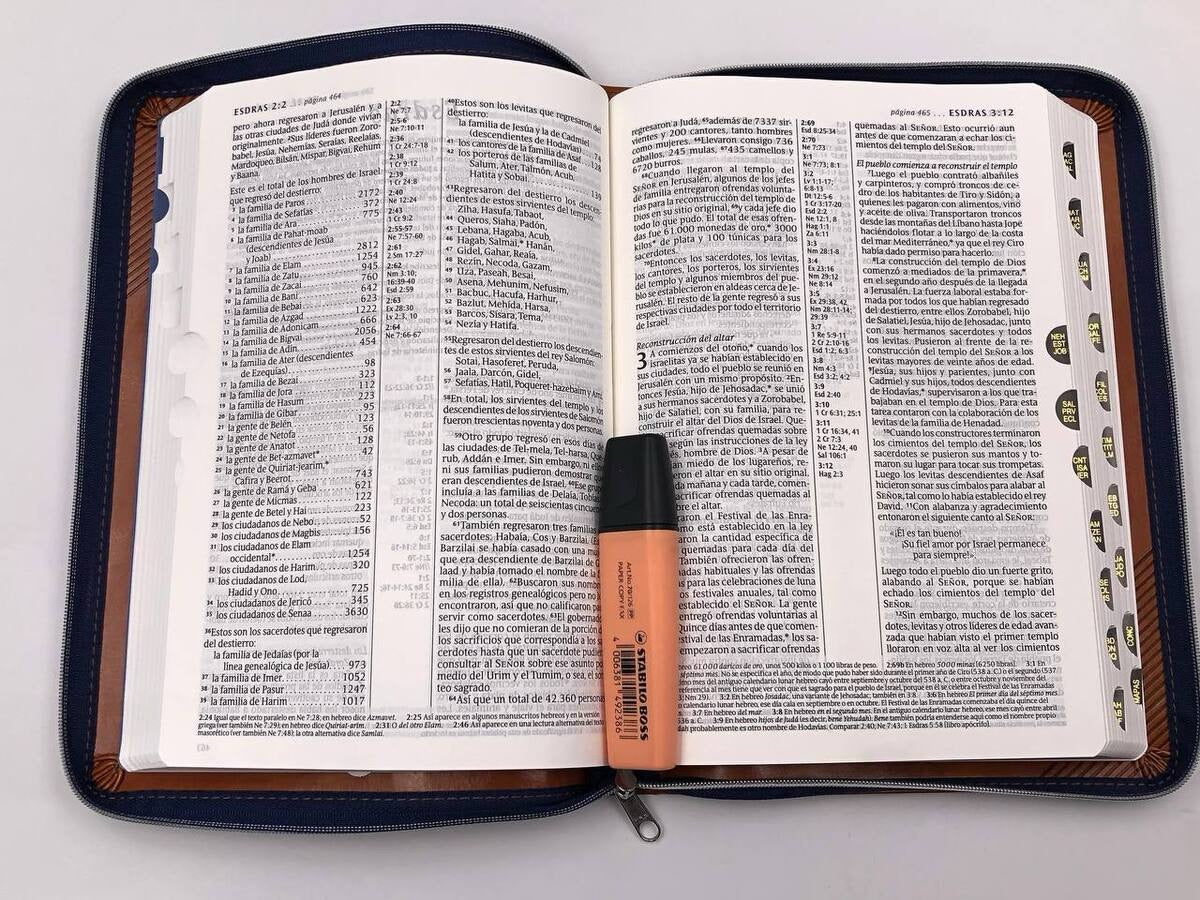 ESDRAS 2:2 ... página 464
pero ahora regresaron a Jerusalén y a
las otras ciudades de Judá donde vivían
originalmente. ²Sus líderes fueron Zoro-
babel, Jesúa, Nehemías, Seraías, Reelaías,
Mardoqueo, Bilsán, Mispar, Bigvai, Rehum
y Baana.
Este es el total de los hombres de Israel
que regresó del destierro:
3 la familia de Paros 2172
4 la familia de Sefatías 372
5 la familia de Ara 775
6 la familia de Pahat-moab
(descendientes de Jesúa
y Joab) 2812
7 la familia de Elam 1254
8 la familia de Zatu 945
9 la familia de Zacai 760
10 la familia de Bani 642
11 la familia de Bebai 623
12 la familia de Azgad 1222
13 la familia de Adonicam 666
14 la familia de Bigvai 2056
15 la familia de Adín 454
16 la familia de Ater (descendientes
de Ezequías) 98
17 la familia de Bezai 323
18 la familia de Jora 112
19 la familia de Hasum 223
20 la familia de Gibar 95
21 la gente de Belén 123
22 la gente de Netofa 56
23 la gente de Anatot 128
24 la gente de Bet-azmavet* 42
25 la gente de Quiriat-jearim,*
Cafira y Beerot 743
26 la gente de Ramá y Geba 621
27 la gente de Micmas 122
28 la gente de Betel y Hai 223
29 los ciudadanos de Nebo 52
30 los ciudadanos de Magbis 156
31 los ciudadanos de Elam
occidental* 1254
32 los ciudadanos de Harim 320
33 los ciudadanos de Lod,
Hadid y Ono 725
34 los ciudadanos de Jericó 345
35 los ciudadanos de Senaa 3630
³⁶Estos son los sacerdotes que regresaron
del destierro:
la familia de Jedaías (por la
línea genealógica de Jesúa) 973
37 la familia de Imer 1052
38 la familia de Pasur 1247
39 la familia de Harim 1017
2:2
Ne 7:7
2:5-6
Ne 7:10-11
2:36
1 Cr 24:7-18
2:38
1 Cr 9:12
2:39
1 Cr 24:8
2:40
Ne 12:24
2:43
1 Cr 9:2
2:55-57
Ne 7:57-60
2:61
2 Sm 17:27
2:62
Nm 3:10;
16:39-40
Esd 2:59
2:63
Ex 28:30
Lv 2:3, 10
2:64
Ne 7:66-67
⁴⁰Estos son los levitas que regresaron del
destierro:
la familia de Jesúa y la de Cadmiel
(descendientes de Hodavías) 74
41 los cantores de la familia de Asaf 128
42 los porteros de las familias de
Salum, Ater, Talmón, Acub,
Hatita y Sobai 139
⁴³Regresaron del destierro los descen-
dientes de estos sirvientes del templo:
Ziha, Hasufa, Tabaot,
44 Queros, Siaha, Padón,
45 Lebana, Hagaba, Acub,
46 Hagab, Salmai,* Hanán,
47 Gidel, Gahar, Reaía,
48 Rezín, Necoda, Gazam,
49 Uza, Paseah, Besai,
50 Asena, Mehunim, Nefusim,
51 Bacbuc, Hacufa, Harhur,
52 Bazlut, Mehída, Harsa,
53 Barcos, Sísara, Tema,
54 Nezía y Hatifa.
⁵⁵Regresaron del destierro los descendien-
tes de estos sirvientes del rey Salomón:
Sotai, Hasoferet, Peruda,
56 Jaala, Darcón, Gidel,
57 Sefatías, Hatil, Poqueret-hazebaim y Ami.
⁵⁸En total, los sirvientes del templo y los
descendientes de los sirvientes de Salomón
fueron trescientas noventa y dos personas.
⁵⁹Otro grupo regresó en esos días de
las ciudades de Tel-mela, Tel-harsa, Que-
rub, Addán e Imer. Sin embargo, ni ellos
ni sus familias pudieron demostrar que
eran descendientes de Israel. ⁶⁰Ese grupo
incluía a las familias de Delaía, Tobías
Necoda: un total de seiscientas cincuen
y dos personas.
⁶¹También regresaron tres familias
sacerdotes: Habaía, Cos y Barzilai. (E
Barzilai se había casado con una mu
que era descendiente de Barzilai de G
laad y había tomado el nombre de la
milia de ella). ⁶²Buscaron sus nombres
en los registros genealógicos pero no
encontraron, así que no calificaron pa
servir como sacerdotes. ⁶³El goberna
les dijo que no comieran de la porción
los sacrificios que correspondía a los s
cerdotes hasta que un sacerdote pudie
consultar al SEÑOR sobre ese asunto po
medio del Urim y el Tumim, o sea, el sor
teo sagrado.
⁶⁴Así que un total de 42.360 personas
2:24 Igual que el texto paralelo en Ne 7:28; en hebreo dice Azmavet. 2:25 Así aparece en algunos manuscritos hebreos y en la versión
griega (ver también Ne 7:29); en hebreo dice Quiriat-arim. 2:31 O del otro Elam. 2:46 Así aparece en una lectura alternativa del texto
masorético (ver también Ne 7:48); la otra alternativa dice Samlai.
página 465 ... ESDRAS 3:12
regresaron a Judá, ⁶⁵además de 7337 sir-
vientes y 200 cantores, tanto hombres
como mujeres. ⁶⁶Llevaron consigo 736
caballos, 245 mulas, ⁶⁷435 camellos y
6720 burros.
⁶⁸Cuando llegaron al templo del
SEÑOR en Jerusalén, algunos de los jefes
de familia entregaron ofrendas volunta-
rias para la reconstrucción del templo de
Dios en su sitio original, ⁶⁹y cada jefe dio
todo lo que pudo. El total de esas ofren-
das fue 61.000 monedas de oro,* 3000
kilos* de plata y 100 túnicas para los
sacerdotes.
⁷⁰Entonces los sacerdotes, los levitas,
los cantores, los porteros, los sirvientes
del templo y algunos miembros del pue-
blo se establecieron en aldeas cerca de Je-
rusalén. El resto de la gente regresó a sus
respectivas ciudades por todo el territorio
de Israel.
Reconstrucción del altar
3 A comienzos del otoño,* cuando los
israelitas ya se habían establecido en
sus ciudades, todo el pueblo se reunió en
Jerusalén con un mismo propósito. ²En-
tonces Jesúa, hijo de Jehosadac,* se unió
a sus hermanos sacerdotes y a Zorobabel,
hijo de Salatiel, con su familia, para re-
construir el altar del Dios de Israel. Que-
acrificar ofrendas quemadas sobre
según las instrucciones de la ley
s, hombre de Dios. ³A pesar de
an miedo de los lugareños, re-
eron el altar en su sitio original.
da mañana y cada tarde, comen-
acrificar ofrendas quemadas al
bre el altar.
ron el Festival de las Enra-
omo está establecido en la ley
la cantidad específica de
quemadas para cada día del
También ofrecieron las ofren-
das habituales y las ofrendas
para las celebraciones de luna
stivales anuales, tal como
establecido el SEÑOR. La gente
entregó ofrendas voluntarias al
Quince días antes de que comen-
estival de las Enramadas,* los sa-
mpezaron a sacrificar ofrendas
2:69
Esd 8:25-34
2:70
Ne 7:73
3:1
Ne 7:73; 8:1
3:2
Lv 1:1-17;
6:8-13
Dt 12:5-6
1 Cr 3:17-20
Esd 2:2
Ne 12:1, 8
Hag 1:1
Za 6:11
3:3
Nm 28:1-8
3:4
Ex 23:16
Nm 29:12
Ne 8:14
3:5
Ex 29:38, 42
Nm 28:11-14;
29:39
3:7
1 Re 5:9-11
2 Cr 2:10-16
Esd 1:2; 6:3
3:8
Nm 4:3
Esd 3:2; 4:2
3:9
Esd 2:40
3:10
1 Cr 6:31; 25:1
3:11
1 Cr 16:34, 41
2 Cr 7:3
Ne 12:24, 40
Sal 106:1
3:12
Hag 2:3
quemadas al SEÑOR. Esto ocurrió aun
antes de que comenzaran a echar los ci-
mientos del templo del SEÑOR.
El pueblo comienza a reconstruir el templo
⁷Luego el pueblo contrató albañiles
y carpinteros, y compró troncos de ce-
dro de los habitantes de Tiro y Sidón; a
quienes les pagaron con alimentos, vino
y aceite de oliva. Transportaron troncos
desde las montañas del Líbano hasta Jope
haciéndolos flotar a lo largo de la costa
del mar Mediterráneo,* ya que el rey Ciro
había dado permiso para hacerlo.
⁸La construcción del templo de Dios
comenzó a mediados de la primavera,*
en el segundo año después de la llegada
a Jerusalén. La fuerza laboral estaba for-
mada por todos los que habían regresado
del destierro, entre ellos Zorobabel, hijo
de Salatiel, Jesúa, hijo de Jehosadac, junto
con sus hermanos sacerdotes y todos
los levitas. Pusieron al frente de la re-
construcción del templo del SEÑOR a los
levitas mayores de veinte años de edad.
⁹Jesúa, sus hijos y parientes, junto con
Cadmiel y sus hijos, todos descendientes
de Hodavías,* supervisaron a los que tra-
bajaban en el templo de Dios. Para esta
tarea contaron con la colaboración de los
levitas de la familia de Henadad.
¹⁰Cuando los constructores terminaron
los cimientos del templo del SEÑOR, los
sacerdotes se pusieron sus mantos y to-
maron su lugar para tocar sus trompetas.
Luego los levitas descendientes de Asaf
hicieron sonar sus címbalos para alabar al
SEÑOR, tal como lo había establecido el rey
David. ¹¹Con alabanza y agradecimiento
entonaron el siguiente canto al SEÑOR:
«¡Él es tan bueno!
¡Su fiel amor por Israel permanece
para siempre!».
Luego todo el pueblo dio un fuerte grito,
alabando al SEÑOR, porque se habían
echado los cimientos del templo del
SEÑOR.
¹²Sin embargo, muchos de los sacer-
dotes, levitas y otros líderes de edad avan-
zada que habían visto el primer templo
lloraron en voz alta al ver los cimientos
NEH
EST
JOB
SAL
PRV
ECL
CNT
ISA
JER
CONC
MAPAS
STABILO BOSS
Art.-No. 70/126
PAPER COPY FAX
4 006381 492386